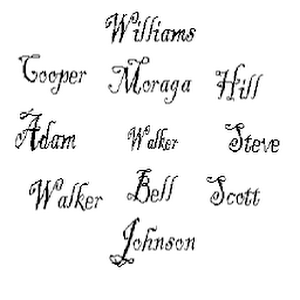 Williams
Cooper Moraga Hill
Adam Walker Steve
Walker Bell Scott
Johnson